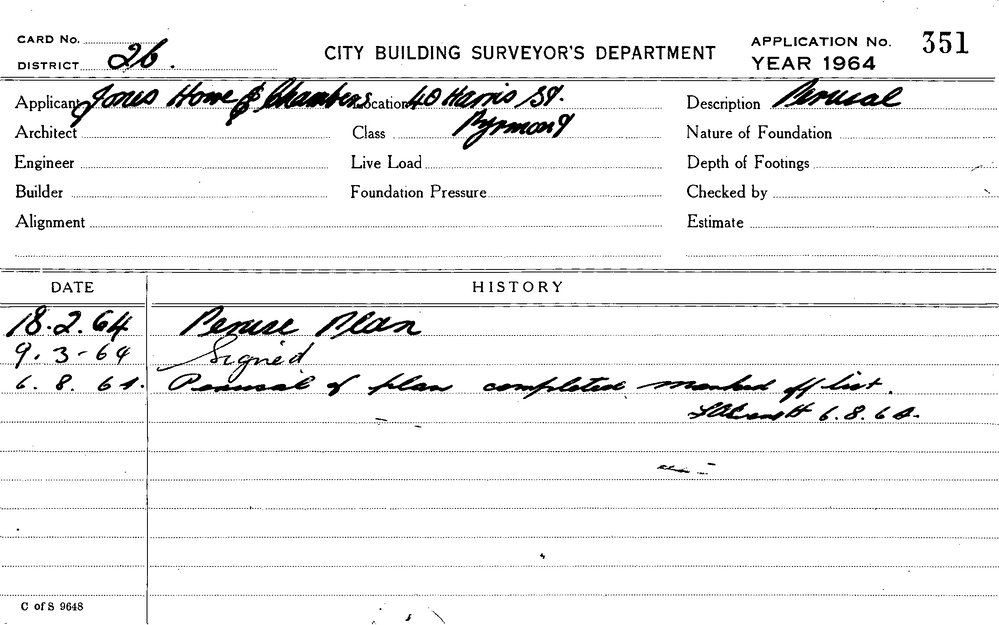 CARD No.
DISTRICT 26.
CITY BUILDING SURVEYOR'S DEPARTMENT
APPLICATION No. 351
YEAR 1964
Applicant Jones Howe & Chambers Location 40 Harris St. Description Perusal
Architect Class Pyrmont Nature of Foundation
Engineer Live Load Depth of Footings
Builder Foundation Pressure Checked by
Alignment Estimate
DATE HISTORY
18.2.64 Peruse Plan
9.3-64 Signed
6.8.64. Perusal of plan completed marked off list.
6.8.64.
C of S 9648